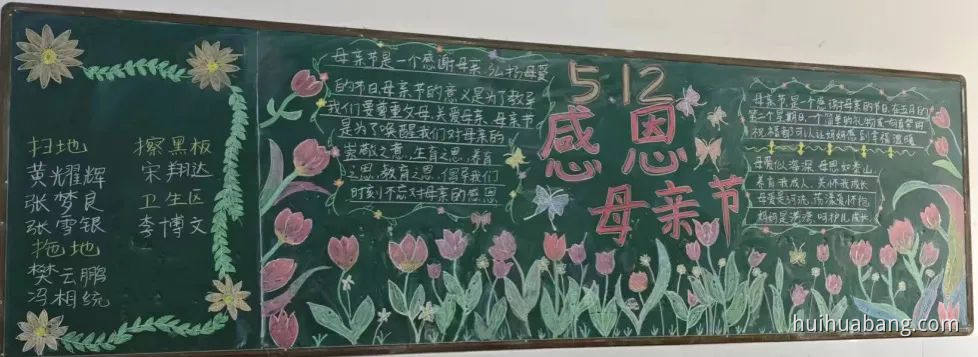 扫地
黄耀辉
张梦良
张雪银
拖地
樊云鹏
冯相统
擦黑板
宋翔达
卫生区
李博文
母亲节是一个感谢母亲,弘扬母爱
的节日,母亲节的意义是为了教导
我们要尊重父母,关爱母亲,母亲节
是为了唤醒我们对母亲的
之恩,教育之恩,倡导我们
时刻不忘对母亲的感恩
5 12
感恩
母亲节
母亲节是一个感谢母亲的节日,在五月的
第二个星期日,一个简单的礼物或一句
祝福都可以让妈妈感到幸福温暖
母爱似海深,母恩如泰山
养育我成人,关怀我成长
母爱是河流
成长
huihuabang.com